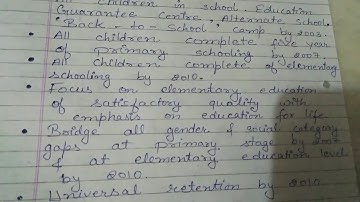 All children in school. Education
Guarantee Centre, Alternate School,
"Back-to-School" camp by 2003.
• All children complete five year
of primary schooling by 2007
• All children complete of elementary
schooling by 2010.
• Focus on elementary education
of satisfactory quality with
emphasis on education for life
• Bridge all gender & social category
gaps at primary stage by 2007
& at elementary education level
by 2010.
• Universal retention by 2010